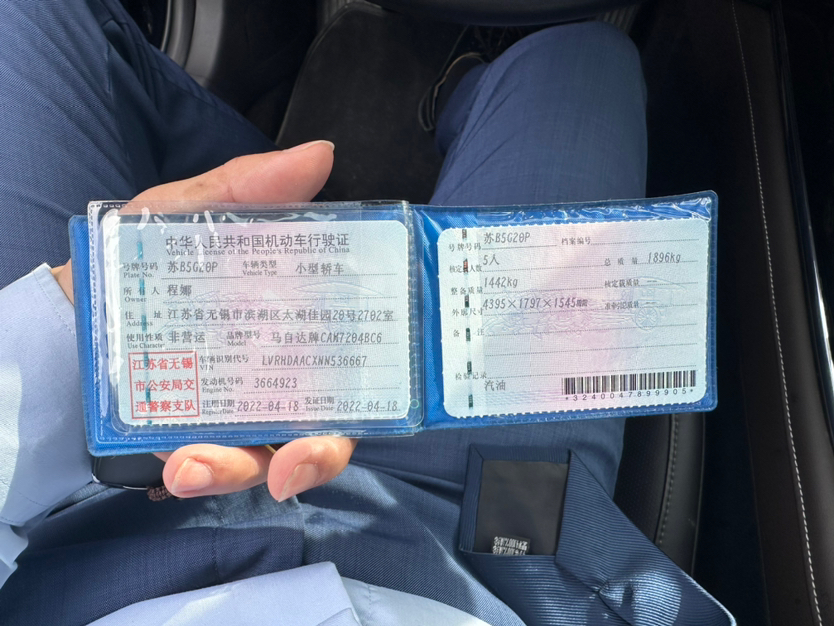 中华人民共和国机动车行驶证
Vehicle License of the People's Republic of China
号牌号码 苏B5G20P 车辆类型 小型轿车
Plate No. Vehicle Type
所有人 程娜
Owner
住 址 江苏省无锡市滨湖区太湖佳园20号2702室
Address
使用性质 非营运 品牌型号 马自达牌CAM7204BC6
Use Character Model
江苏省无锡
市公安局交
通警察支队
车辆识别代号 LVRHDAACXNN536667
VIN
发动机号码 3664923
Engine No.
注册日期 2022-04-18 发证日期 2022-04-18
Register Date Issue Date
号牌号码 苏B5G20P 档案编号
核定载人数 5人 总质量 1896kg
整备质量 1442kg 核定载质量 —
外廓尺寸 4395×1797×1545mm 准牵引总质量 —
备 注
检验记录
汽油
*3240047899905*